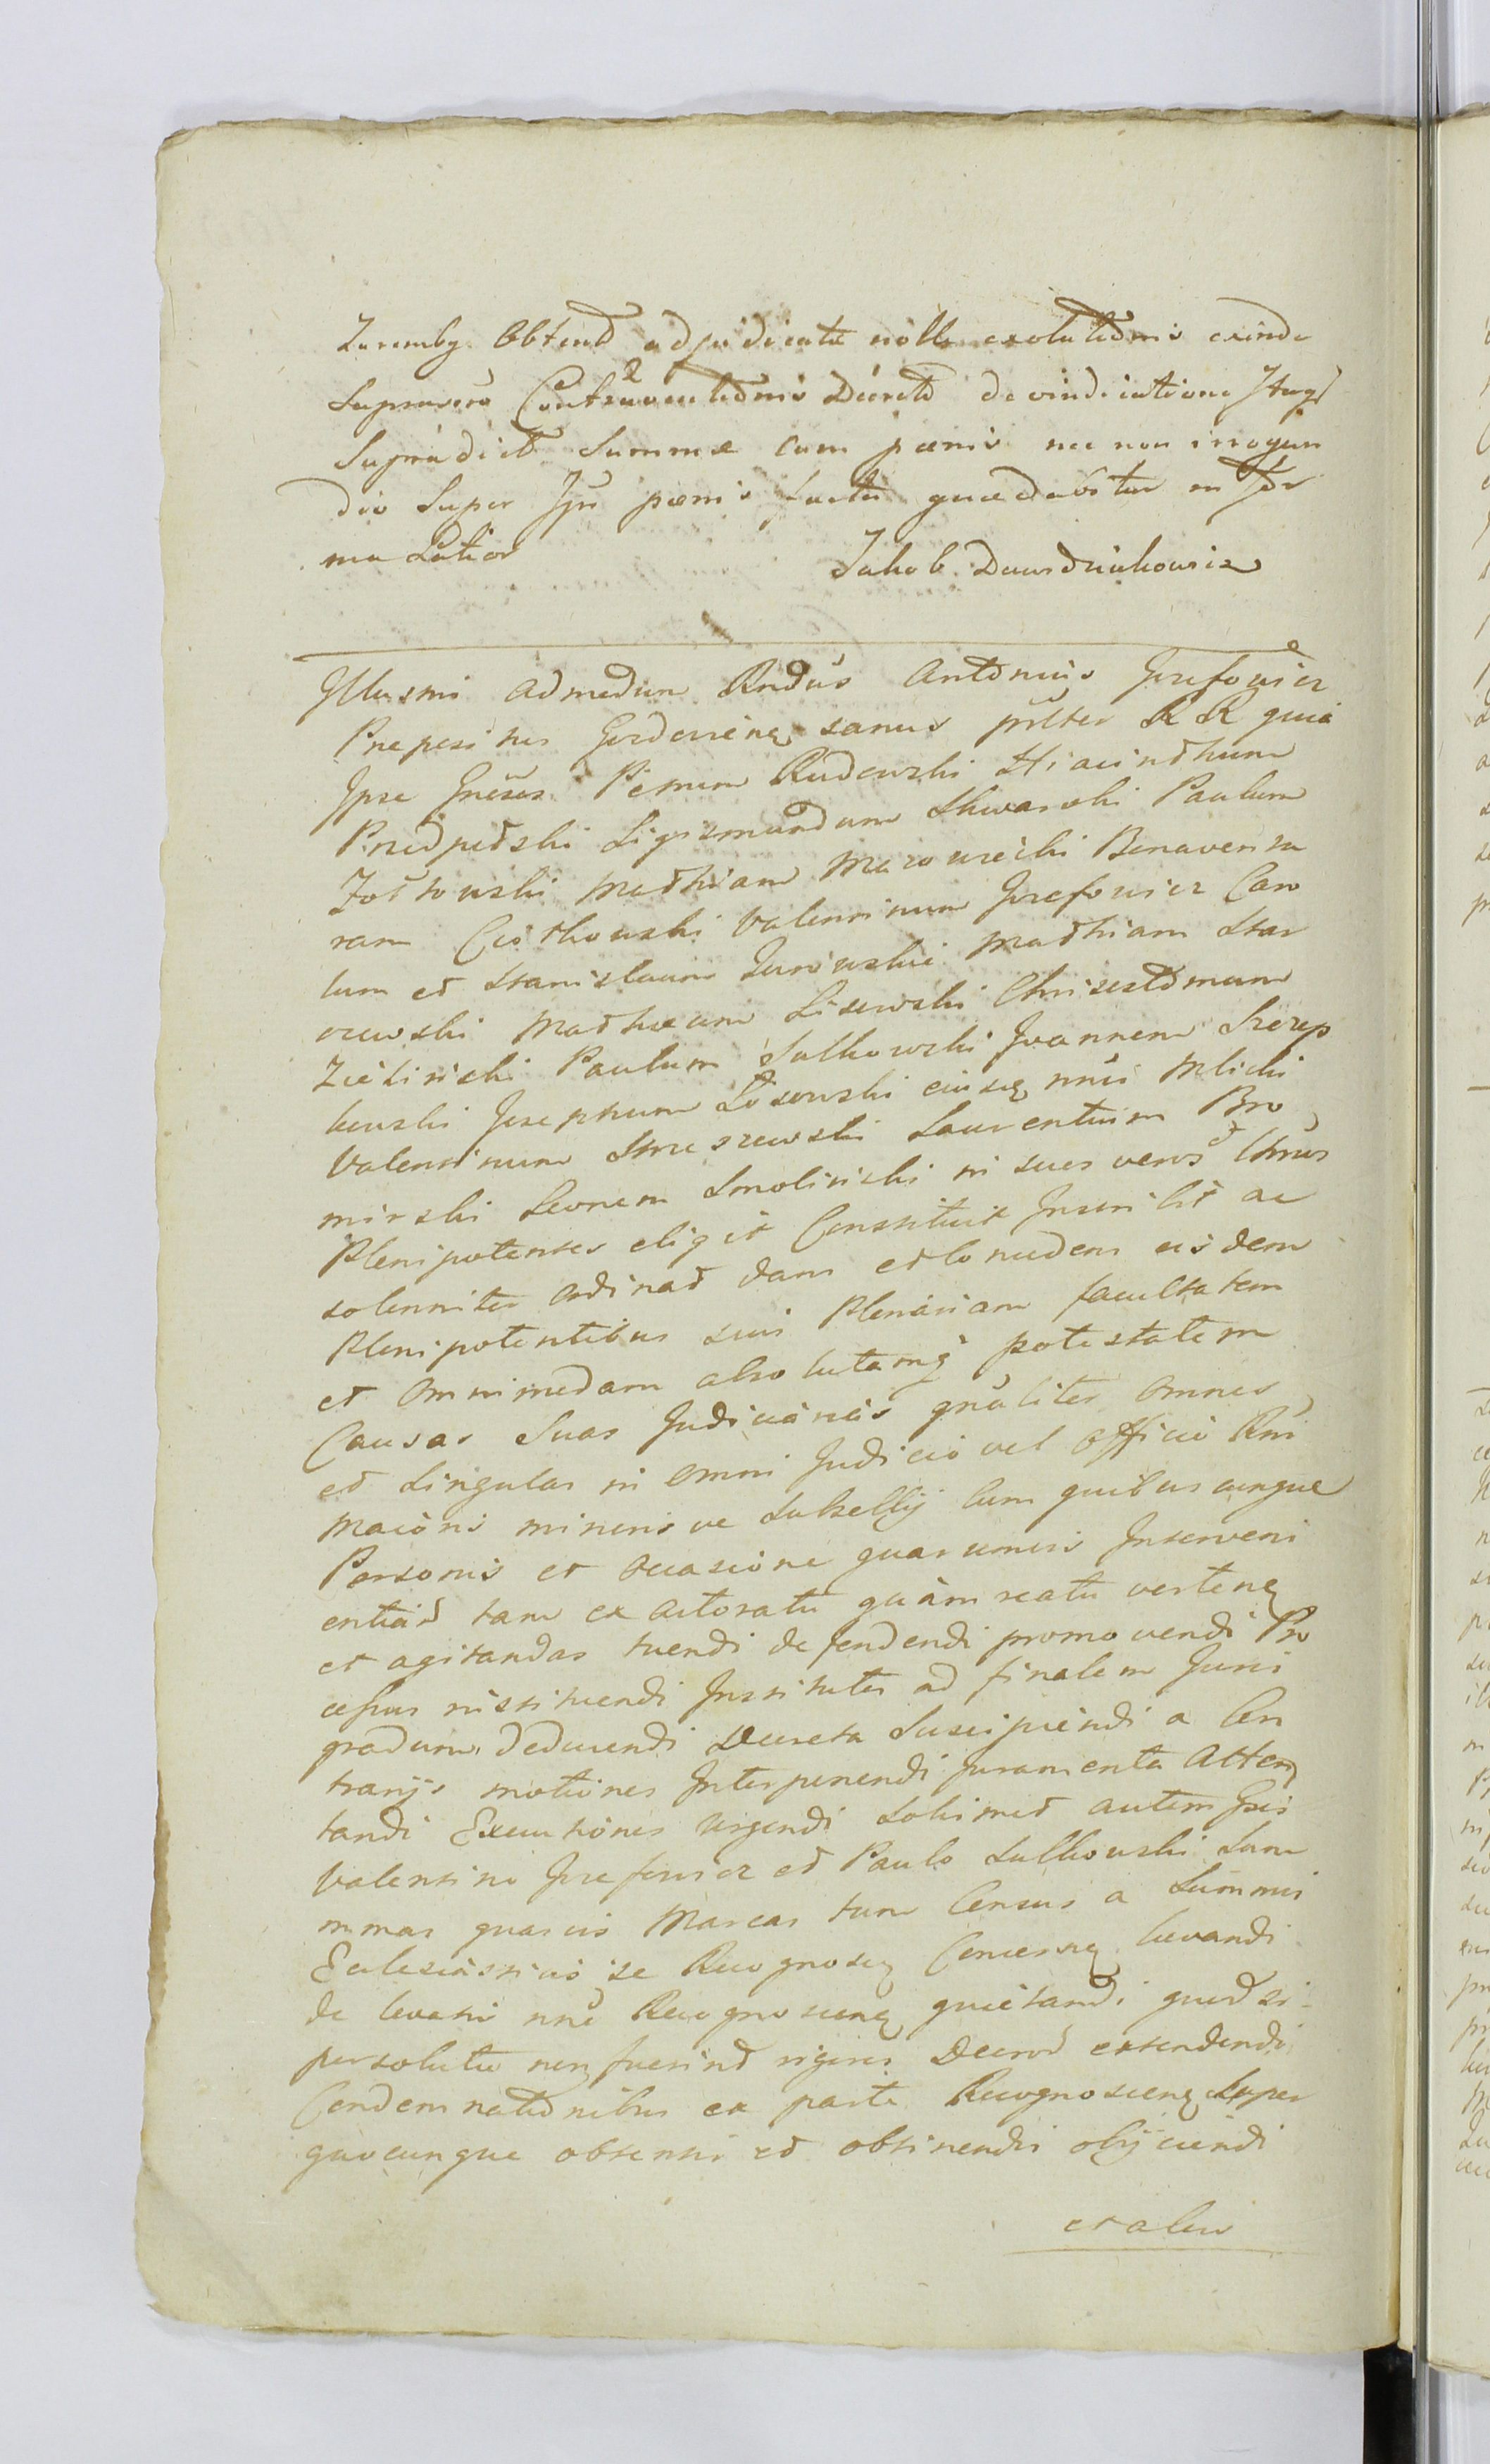 Zaremby Obtent adjudicatæ nölle exolutionis exinde
Supraseró Contraventionis Decreto de vindicatione Itaq
Supradict Summæ cum pœnis nec non irrogan
dis super Ijs pœnis facta quædabitur in for
ma Latior
Jakob Dawidzinkowicz
Illusmi Admodum Rndus Antonius Jozefowicz
Prepositus Gordoviens sanus pñlter RR quia
Ipse Gnësos Pëtrum Rudowski Hiacinthum
Przedpełski Sigismundum Skwarski Paulum
Żółtowski Mathiam Mazowiecki Bonaventu
ram Ciołkowski Valentinum Jozefowicz Caro
lum et Stanislaum Zurawskie Mathiam Star
orewski Mathæum Lisowski Chrisostomum
Zielinski Paulum Sulkowski Joannem Szczep
kowski Josephum Łosowski eiusq nnüs Mlicki
Valentinum Smeszewski Laurentium Bro
mirski Leonem Smolinski in suos veros Ltmos
Plenipotentes eligit Constituit Inscribit ac
solenniter Ordinat dans et Concedens eisdem
Plenipotentibus suis Plenariam facultatem
et Omnimodam absolutamq potestatem
Causas Suas Judiciarias gnäliter Omnes
et Singulas in Omni Judicio vel Officio Rni
Maioris minoris ve Subsellij Cum quibuscunque
Personis et Occasione quarumvis Interveni
entiard tam ex Actoratu quàm reatu vertenq
et agitandas tuendi defendendi promovendi Pro
cessus instituendi Instituta ad finalem Juris
gradum deducendi Decreta Suscipiendi a Con
trarijs motiones Interponendi Juramenta Atten
tandi Executiones Urgendi Solumet autem Gsis
Valentino Jozefowicz et Paulo Sulkowski Sum
mmas quasvis Marcas tum Census a Summis
Eclesiasticis se Recognosq Concernq levandi
de levatis nnë Recognoscenq quietandi quodsi
persolutæ non fuerint rigores Decrod extendendi
Condemnationibus ex parte Recognoscenq Super
quocunque obtentis et obtinendis obijciendi
et alias